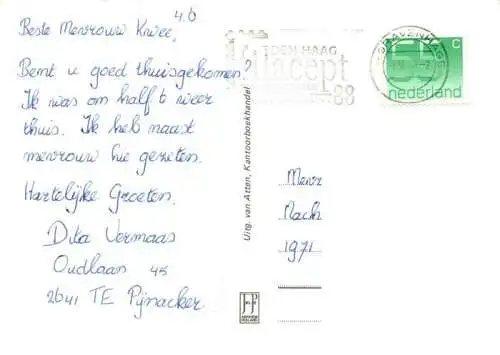 4.b
Beste Mevrouw Kwee,
Bent u goed thuisgekomen?
Ik was om half 1 weer
thuis. Ik heb naast
mevrouw hie gezeten.
Hartelijke Groeten.
Dita Vermaas
Oudlaan 45
2641 TE Pijnacker
Uitg. van Atten, Kantoorboekhandel
DEN HAAG
88
'S-GRAVENHAGE
C
50
nederland
Mevr
Nach
1971